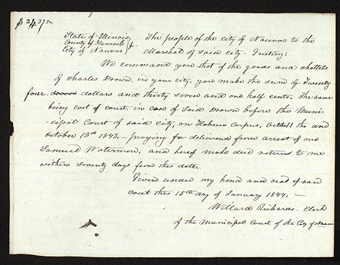 $24.37½
State of Illinois
County of Hancock
City of Nauvoo
The people of the city of Nauvoo to the
Marshal of said city. Greeting:
We command you that of the goods and chattels
of Charles Drown in your city, you make the sum of Twenty
four dollars and thirty seven and one half cents. The same
being cost of court, in case of said Drown before the Muni
cipal Court of said city, on Habeus Corpus, the and
October 13th 1843. praying for deliverance from arrest of one
Samuel Waterman, and hereof make due return to me
within seventy days from this date.
Given under my hand and seal of said
court this 15th day of January 1844.
Willard Richards. Clerk
of the Municipal Court of the City of